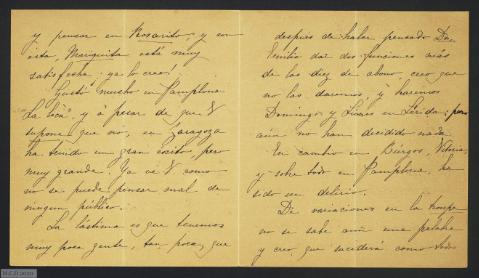 y pensar en Rosarito, y con
esta, Mariquita está muy
satisfecha; ya lo creo!
Gustó mucho en Pamplona
La loca, y á pesar de que V
supone que no, en Zaragoza
ha tenido un gran éxito, pero
muy grande. Ya ve V. como
no se puede pensar mal de
ningun público.
La lástima es que tenemos
muy poca gente, tan poca, que
después de haber pensado Don
Emilio dar dos funciones más
de las diez de abono, creo que
no las daremos, y haremos
Domingo y Lunes en Lérida; pero
aún no han decidido nada.
En cambio en Burgos, Vitoria,
y sobre todo en Pamplona, ha
sido un delirio.
De variaciones en la troupe
no se sabe aún una palabra
y creo que sucederá como todos